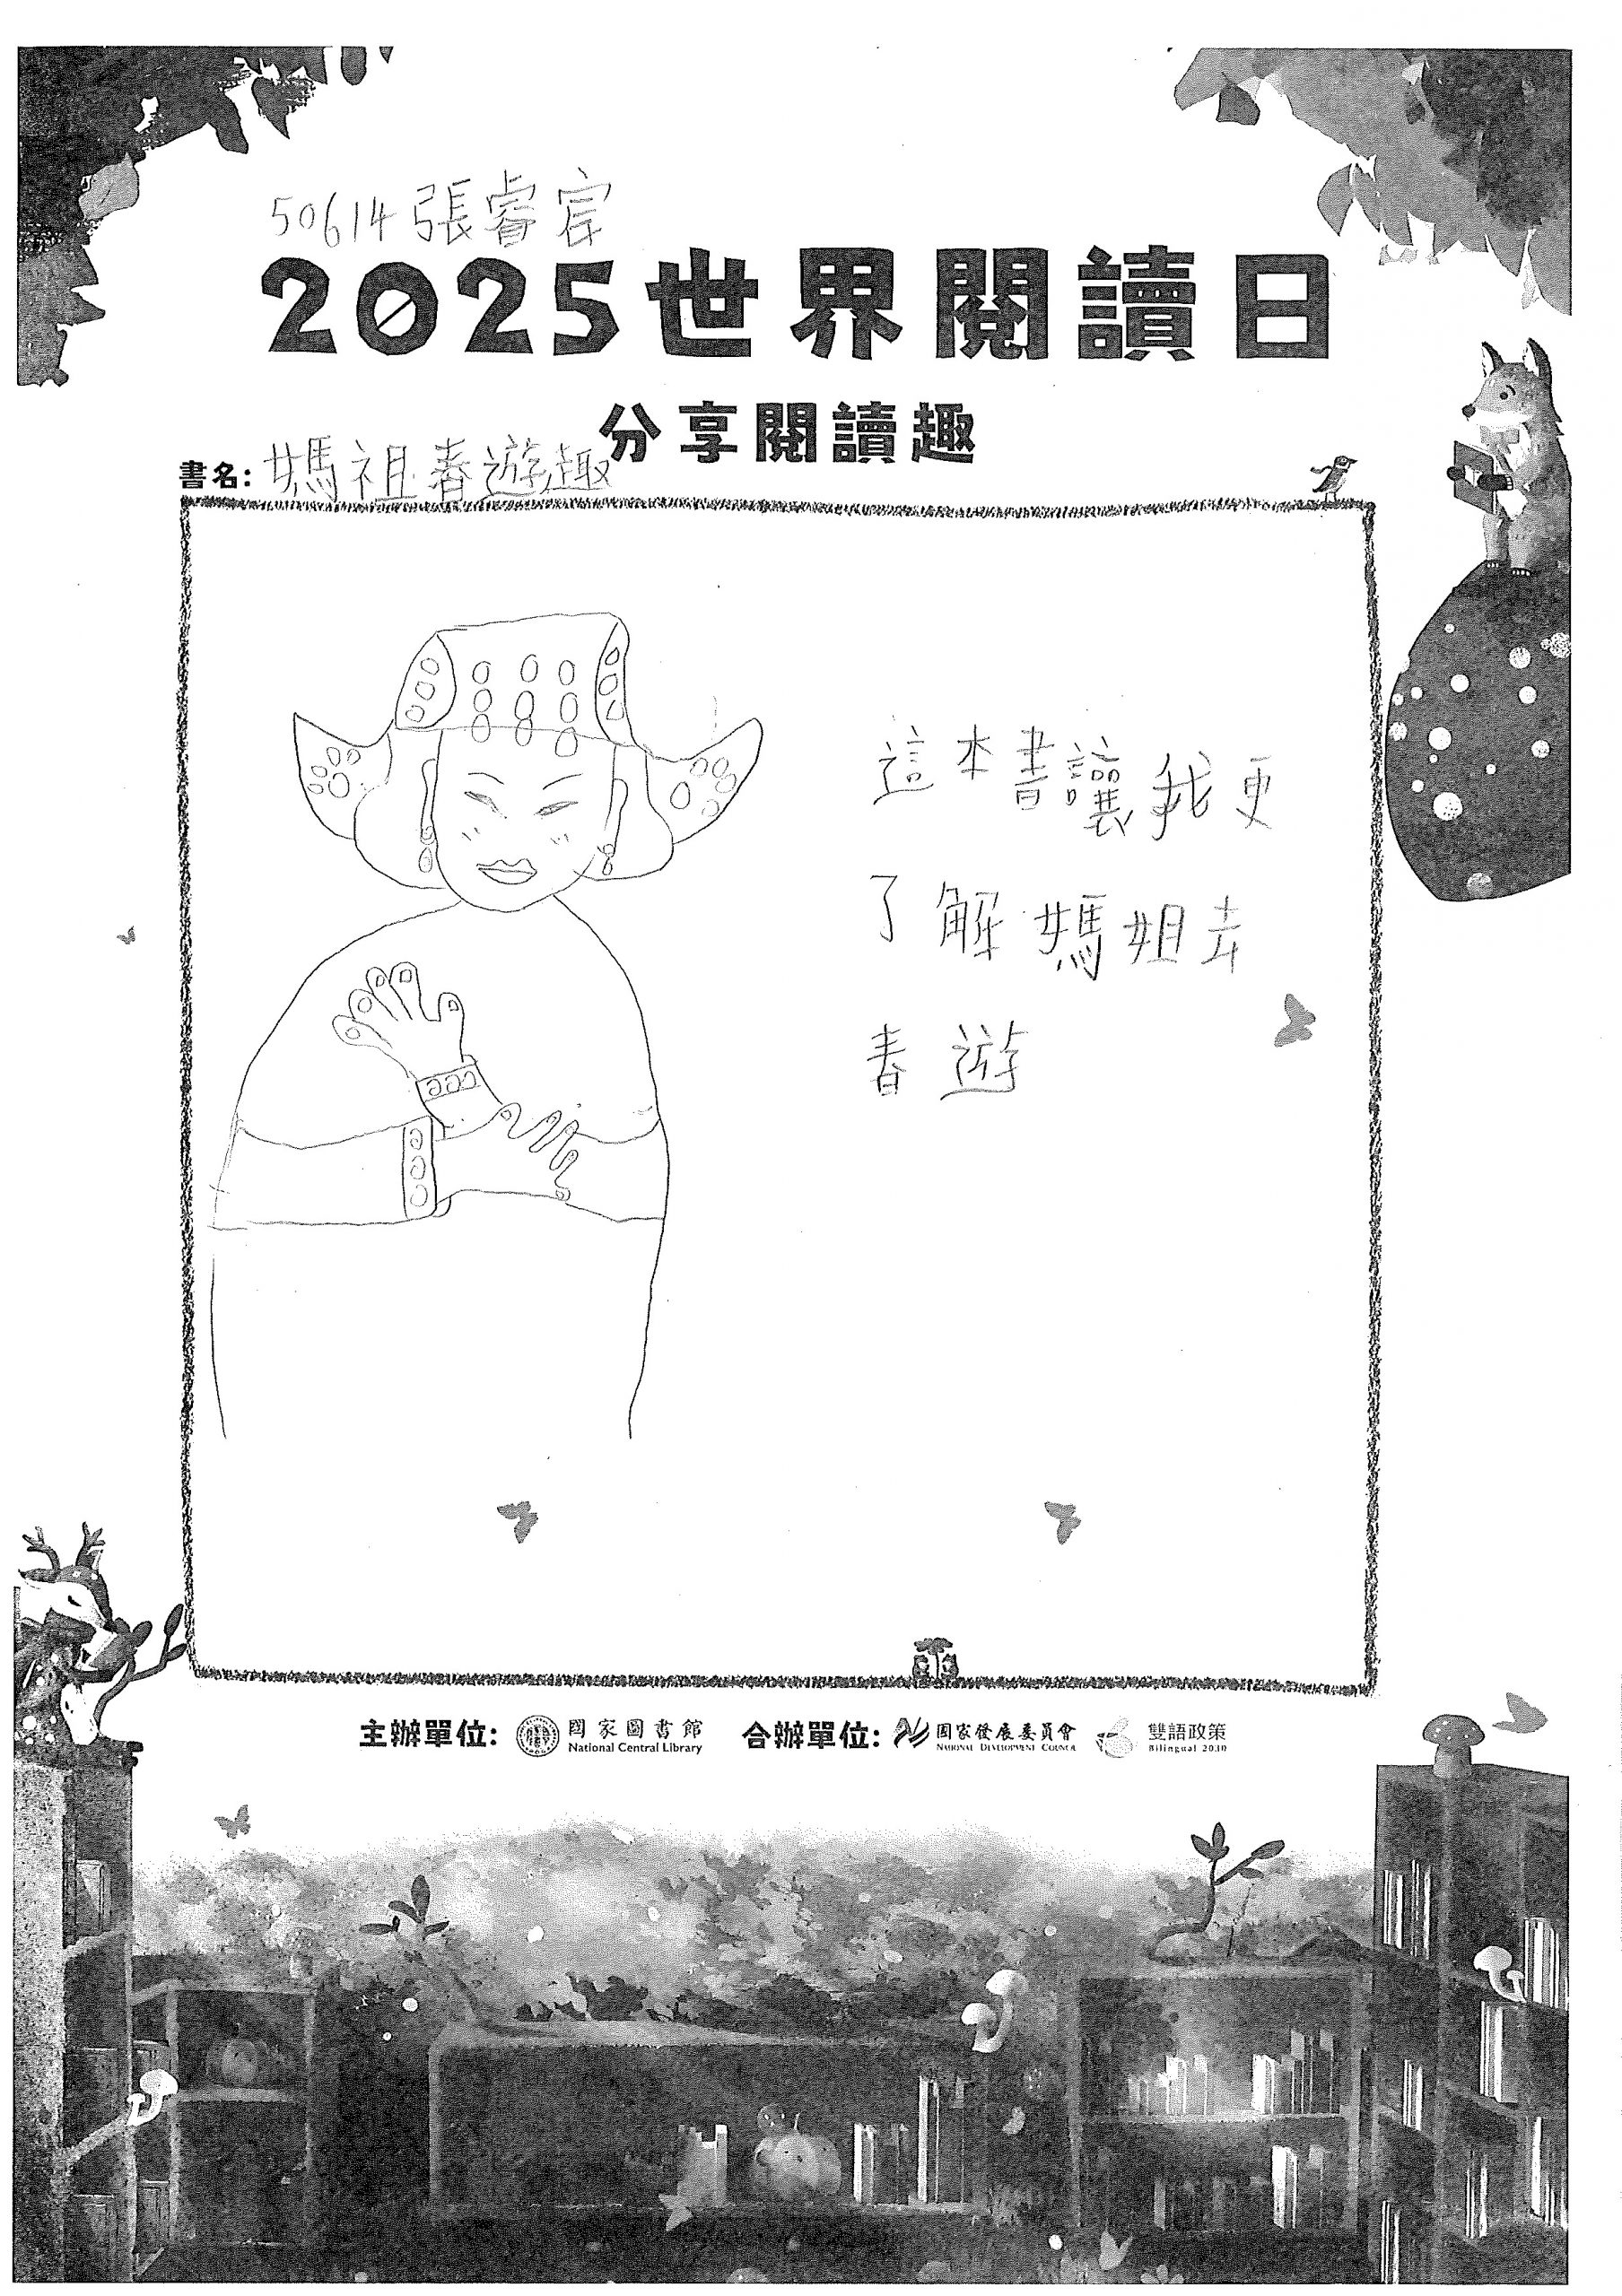 50614 張睿宸
2025世界閱讀日
分享閱讀趣
書名: 媽祖春遊趣
這本書讓我更
了解媽姐去
春遊
主辦單位: 國家圖書館 National Central Library 合辦單位: 國家發展委員會 National Development Council 雙語政策 Bilingual 2030